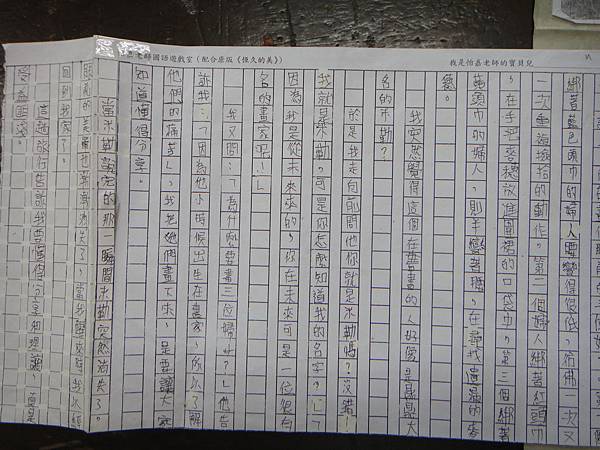 老師國語遊戲室（配合康版《恆久的美》）
我是怡嘉老師的寶貝兒
綁著藍色頭巾的婦人腰彎得很低，彷彿一次又
一次重複撿拾的動作。第二個婦人綁著紅頭巾
，在手把麥穗放進圍裙的口袋中。第三個綁著
黃頭巾的婦人，則半彎著腰，在尋找遺落的麥
穗。
我突然覺得這個在畫畫的人好像是鼎鼎大
名的米勒？
於是我走向前問他你就是米勒嗎？「沒錯！
我就是米勒，可是你怎麼知道我的名字？」「
因為我是從未來來的，你在未來可是一位很有
名的畫家呢！」
我又問：「為什麼要畫三位婦女？」他告
訴我：「因為他小時候出生在農家，所以了解
他們的痛苦」，我把她們畫下來，是要讓大家
知道懂得分享。
當米勒說完的那一瞬間米勒突然消失了。
眼前的美景也漸漸消失了，當我醒來時我以經
回到我家了。
這趟旅行告訴我要懂得分享和理讓，真是
受益匪淺。